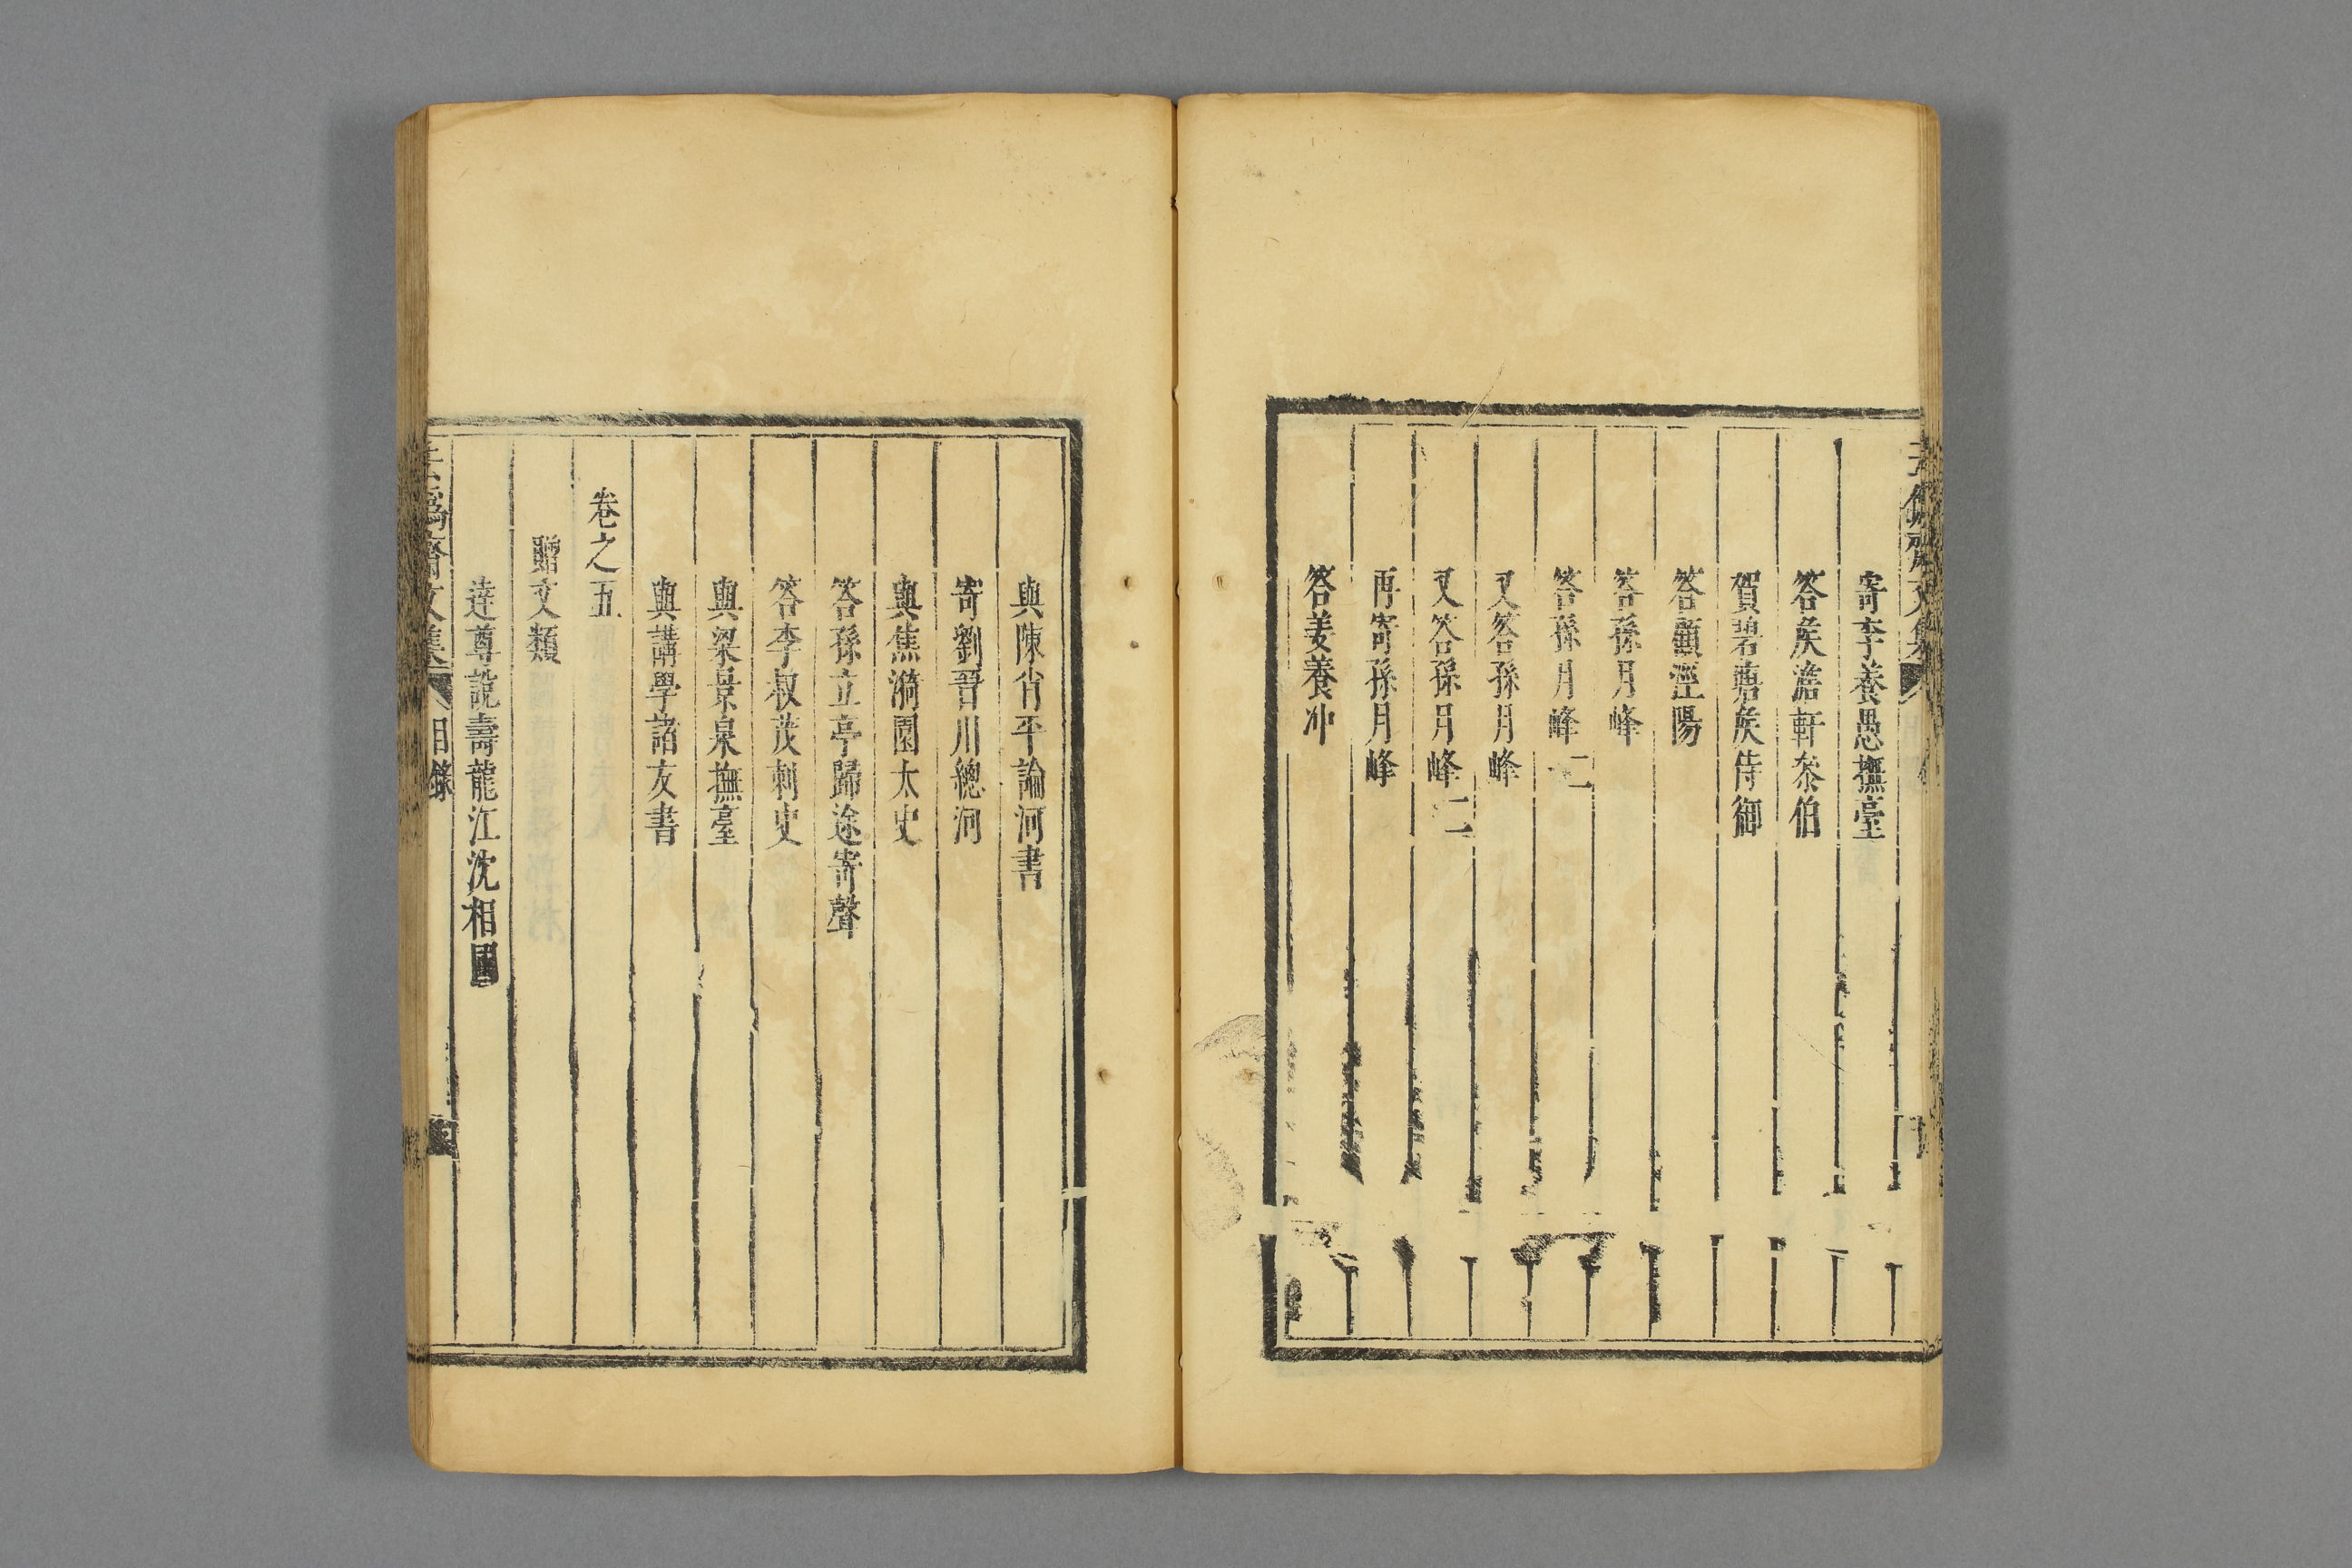 寄李養愚撫臺
答矦澹軒叅伯
賀碧塘矦侍御
答顧涇陽
答孫月峰
答孫月峰二
又答孫月峰
又答孫月峰二
再寄孫月峰
答姜養冲
與陳省平論河書
寄劉晉川總河
與焦漪園太史
答孫立亭歸途寄聲
答李叔茂刺史
與梁景泉撫臺
與講學諸友書
卷之五
贈文類
達尊說壽龍江沈相國
爲齋文集
目錄